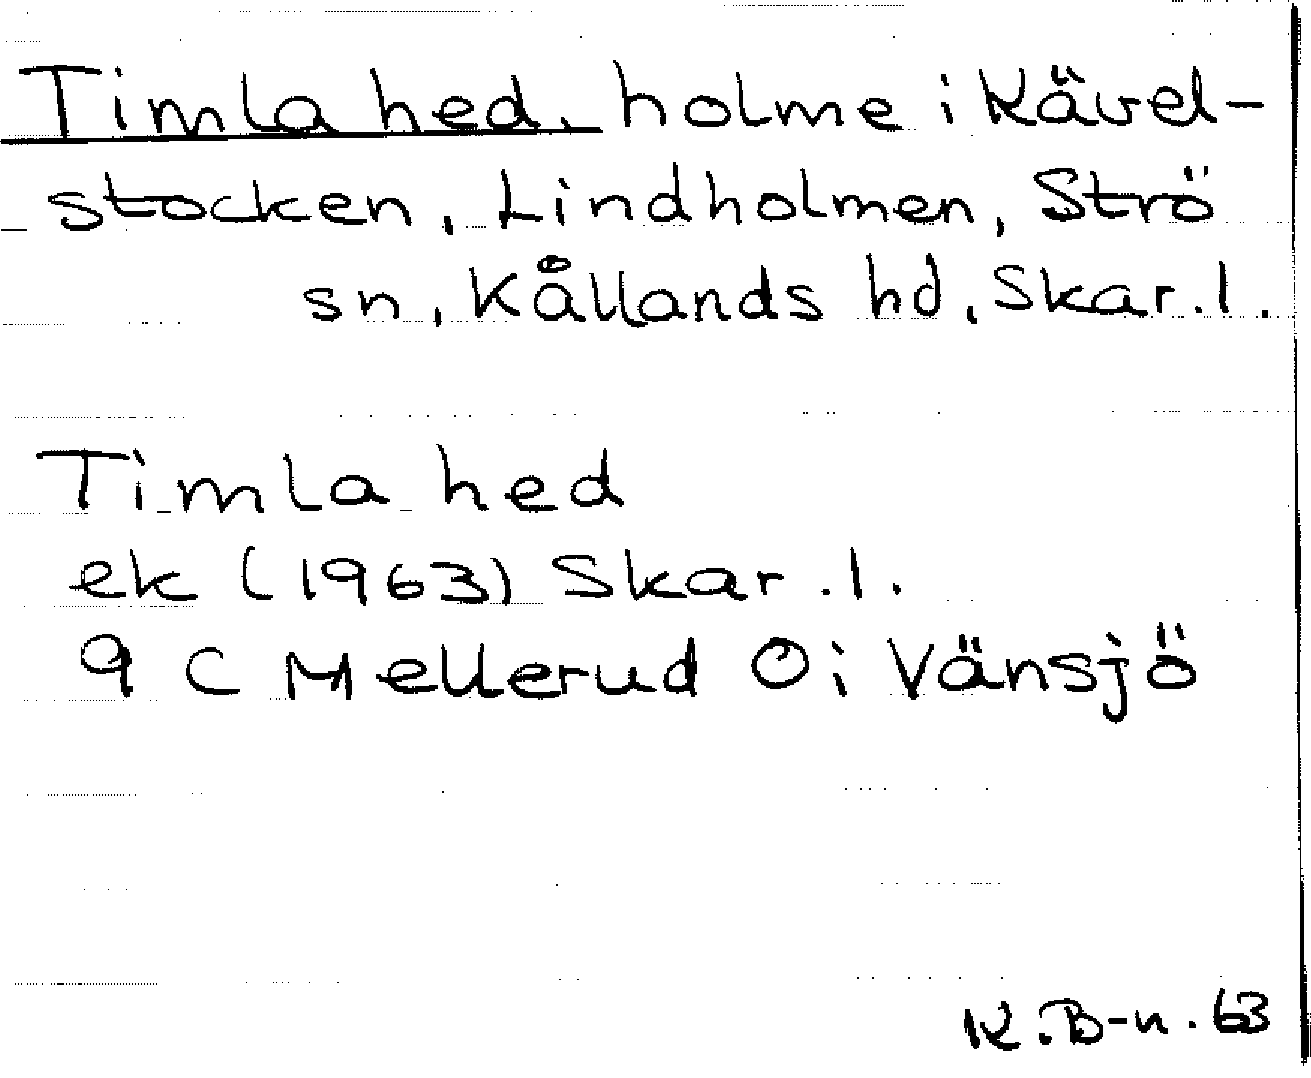 Timla hed, holme i Kävel-
stocken, Lindholmen, Strö
sn, Kållands hd, Skar. l.
Timla hed
ek (1963) Skar. l.
9 C Mellerud Oi Vänsjö
K. B-n. 63